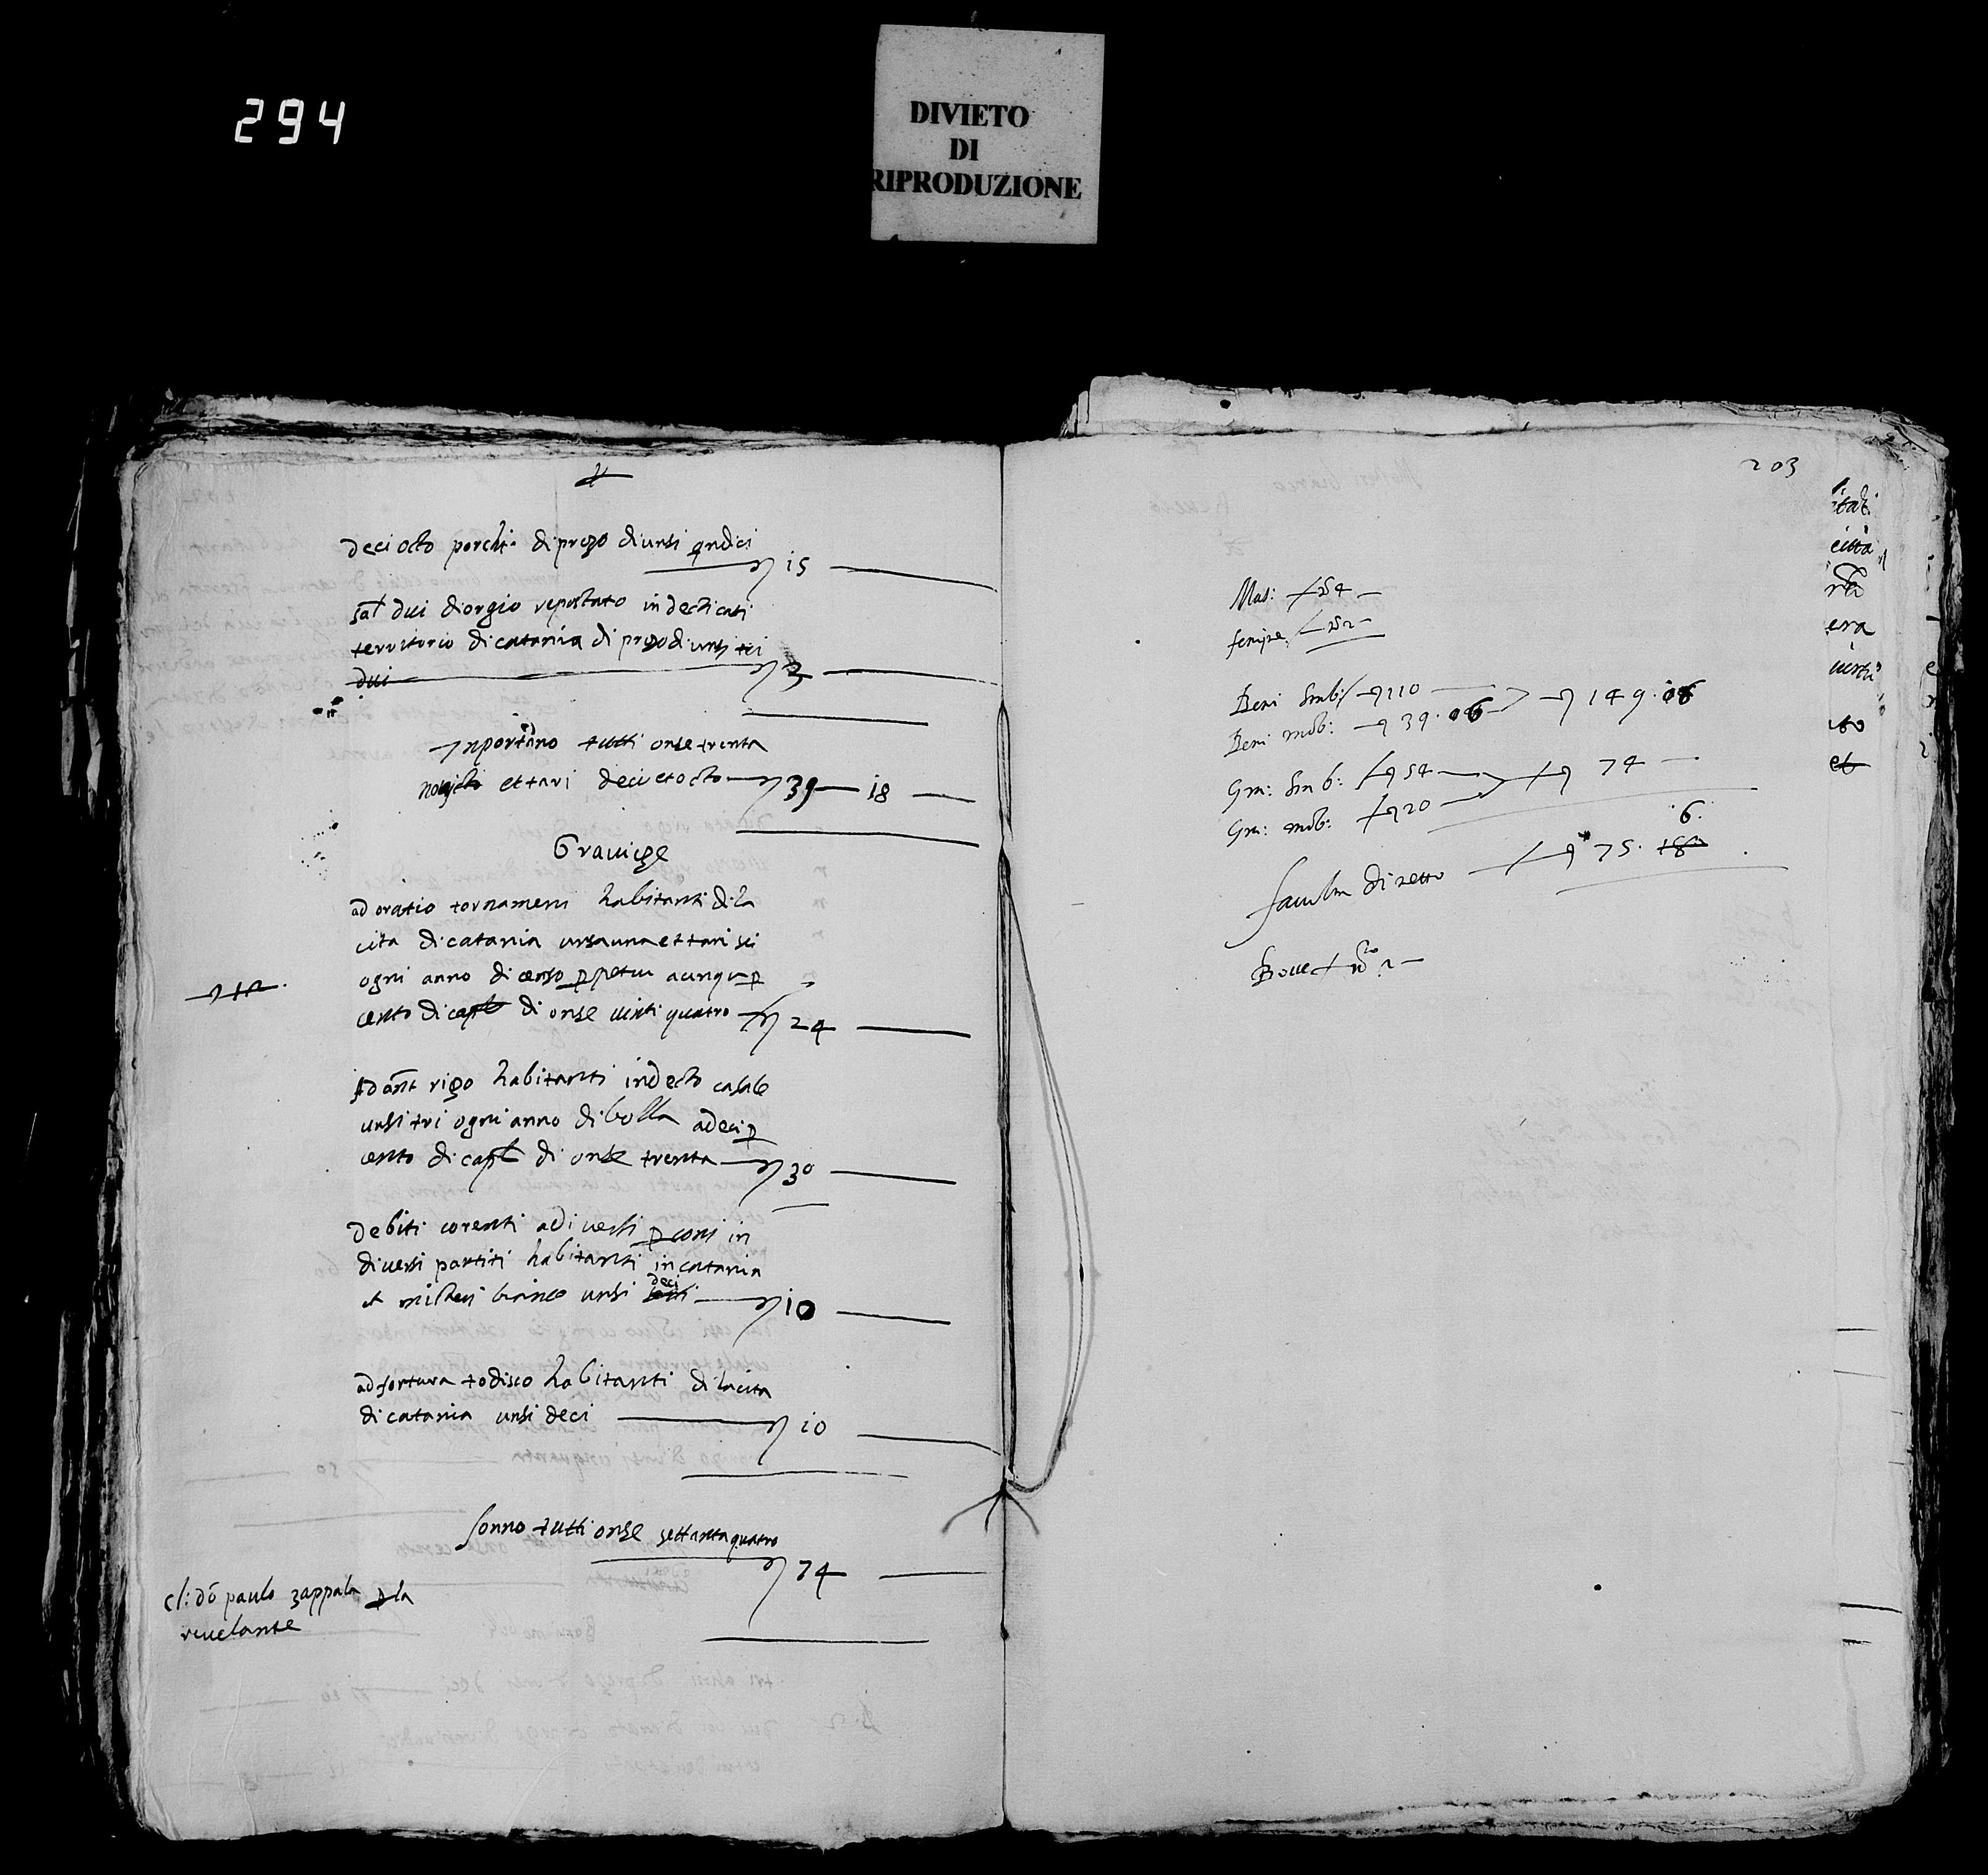 294
DIVIETO
DI
RIPRODUZIONE
deci octo porchi di prezo di unsi quindici
15
sal dui di orgio repostato in decti casi
territorio di catania di prezo di unsi tri
dui 3
Inportano tutti onse trenta
novi et tari deci et octo 39 18
Gravicze
ad oratio tornameni habitanti di la
cita di catania unsa una et tari sei
ogni anno di censo ppetuo a cinqu p
cento di capl di onse vinti quatro 24
Ad ant rizo habitanti in decto casale
unsi tri ogni anno di bolla a deci p
cento di capl di onse trenta 30
debiti corenti a diversi p soni in
diversi partiti habitanti in catania
et misteri bianco unsi deci 10
ad fortuna todisco habitanti di la cita
di catania unsi deci 10
sonno tutti onse settanta quatro
74
cl: do paulo zappala p la
revelante
203
Mas: 4
femine 2
Beni stab: 110
Beni mob: 39. 06 149. 06
Gra: stab: 54 74
Gra: mob: 20
6.
faculta di netto 75. 18
Bove no 2
itati
citta
era
et